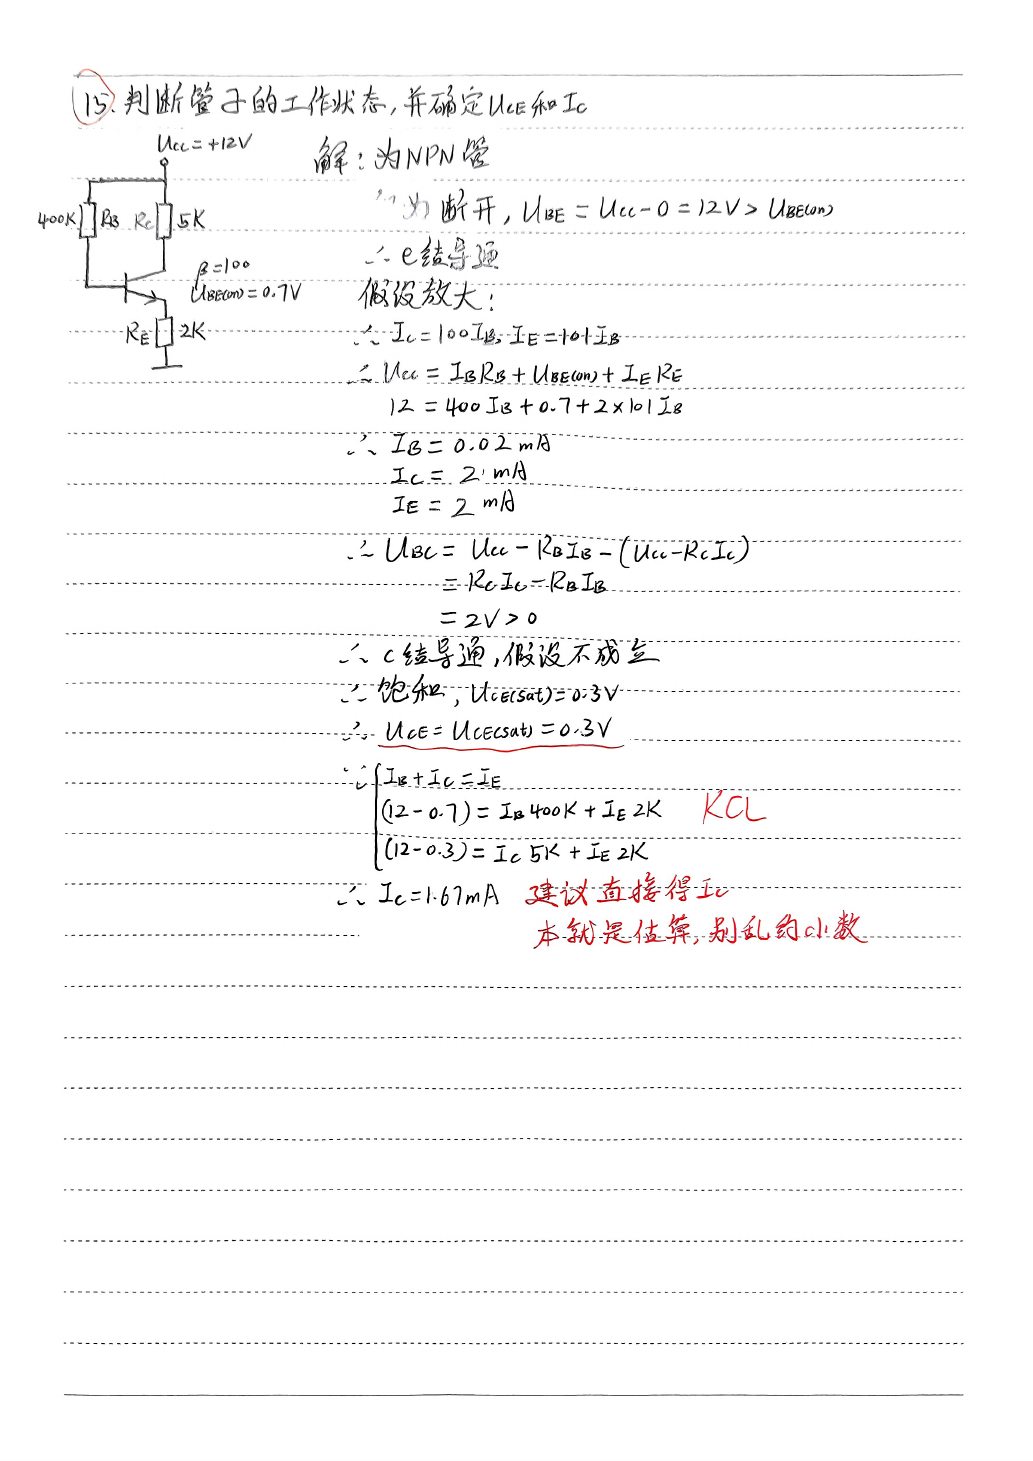 15. 判断管子的工作状态,并确定UCE和Ic
Ucc=+12V
400K RB Rc 5K
β=100
UBE(on)=0.7V
RE 2K
解:为NPN管
断开, UBE=Ucc-0=12V>UBE(on)
∴e结导通
假设放大:
∴Ic=100IB, IE=101IB
∴Ucc=IBRB+UBE(on)+IERE
12=400IB+0.7+2×101IB
∴IB=0.02mA
Ic=2mA
IE=2mA
∴UBC=Ucc-RBIB-(Ucc-RcIc)
=RcIc-RBIB
=2V>0
∴c结导通,假设不成立
∴饱和, UCE(sat)=0.3V
∴UCE=UCE(sat)=0.3V
∵{IB+Ic=IE
(12-0.7)=IB400K+IE2K KCL
(12-0.3)=Ic5K+IE2K
∴Ic=1.67mA 建议直接得Ic
本就是估算,别乱约小数